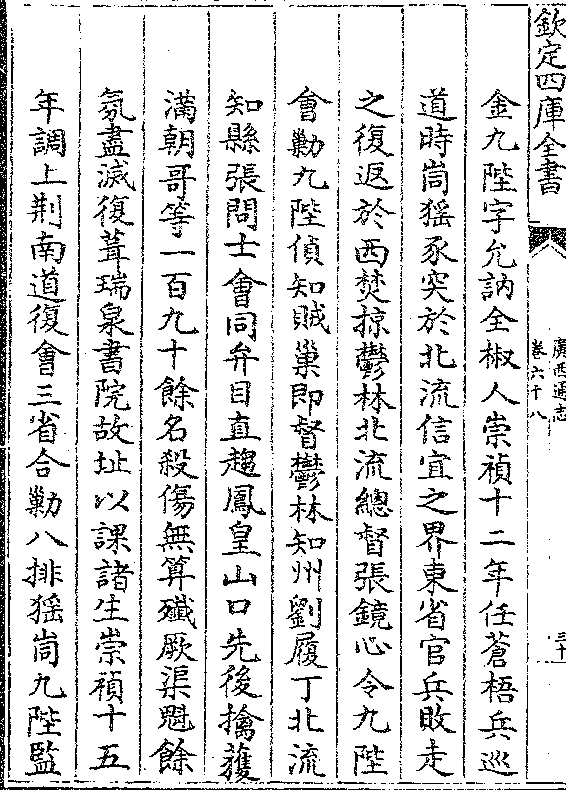 欽定四庫全書
廣西通志
卷六十八
三十
金九陛字允訥全椒人崇禎十二年任蒼梧兵巡
道時峝猺豕突於北流信宜之界東省官兵敗走
之復返於西焚掠鬱林北流總督張鏡心令九陛
會勦九陛偵知賊巢即督鬱林知州劉履丁北流
知縣張問士會同弁目直趨鳳皇山口先後擒蕕
滿朝哥等一百九十餘名殺傷無算殲厥渠魁餘
氛盡滅復葺瑞泉書院故址以課諸生崇禎十五
年調上荆南道復會三省合勦八排猺峝九陛監